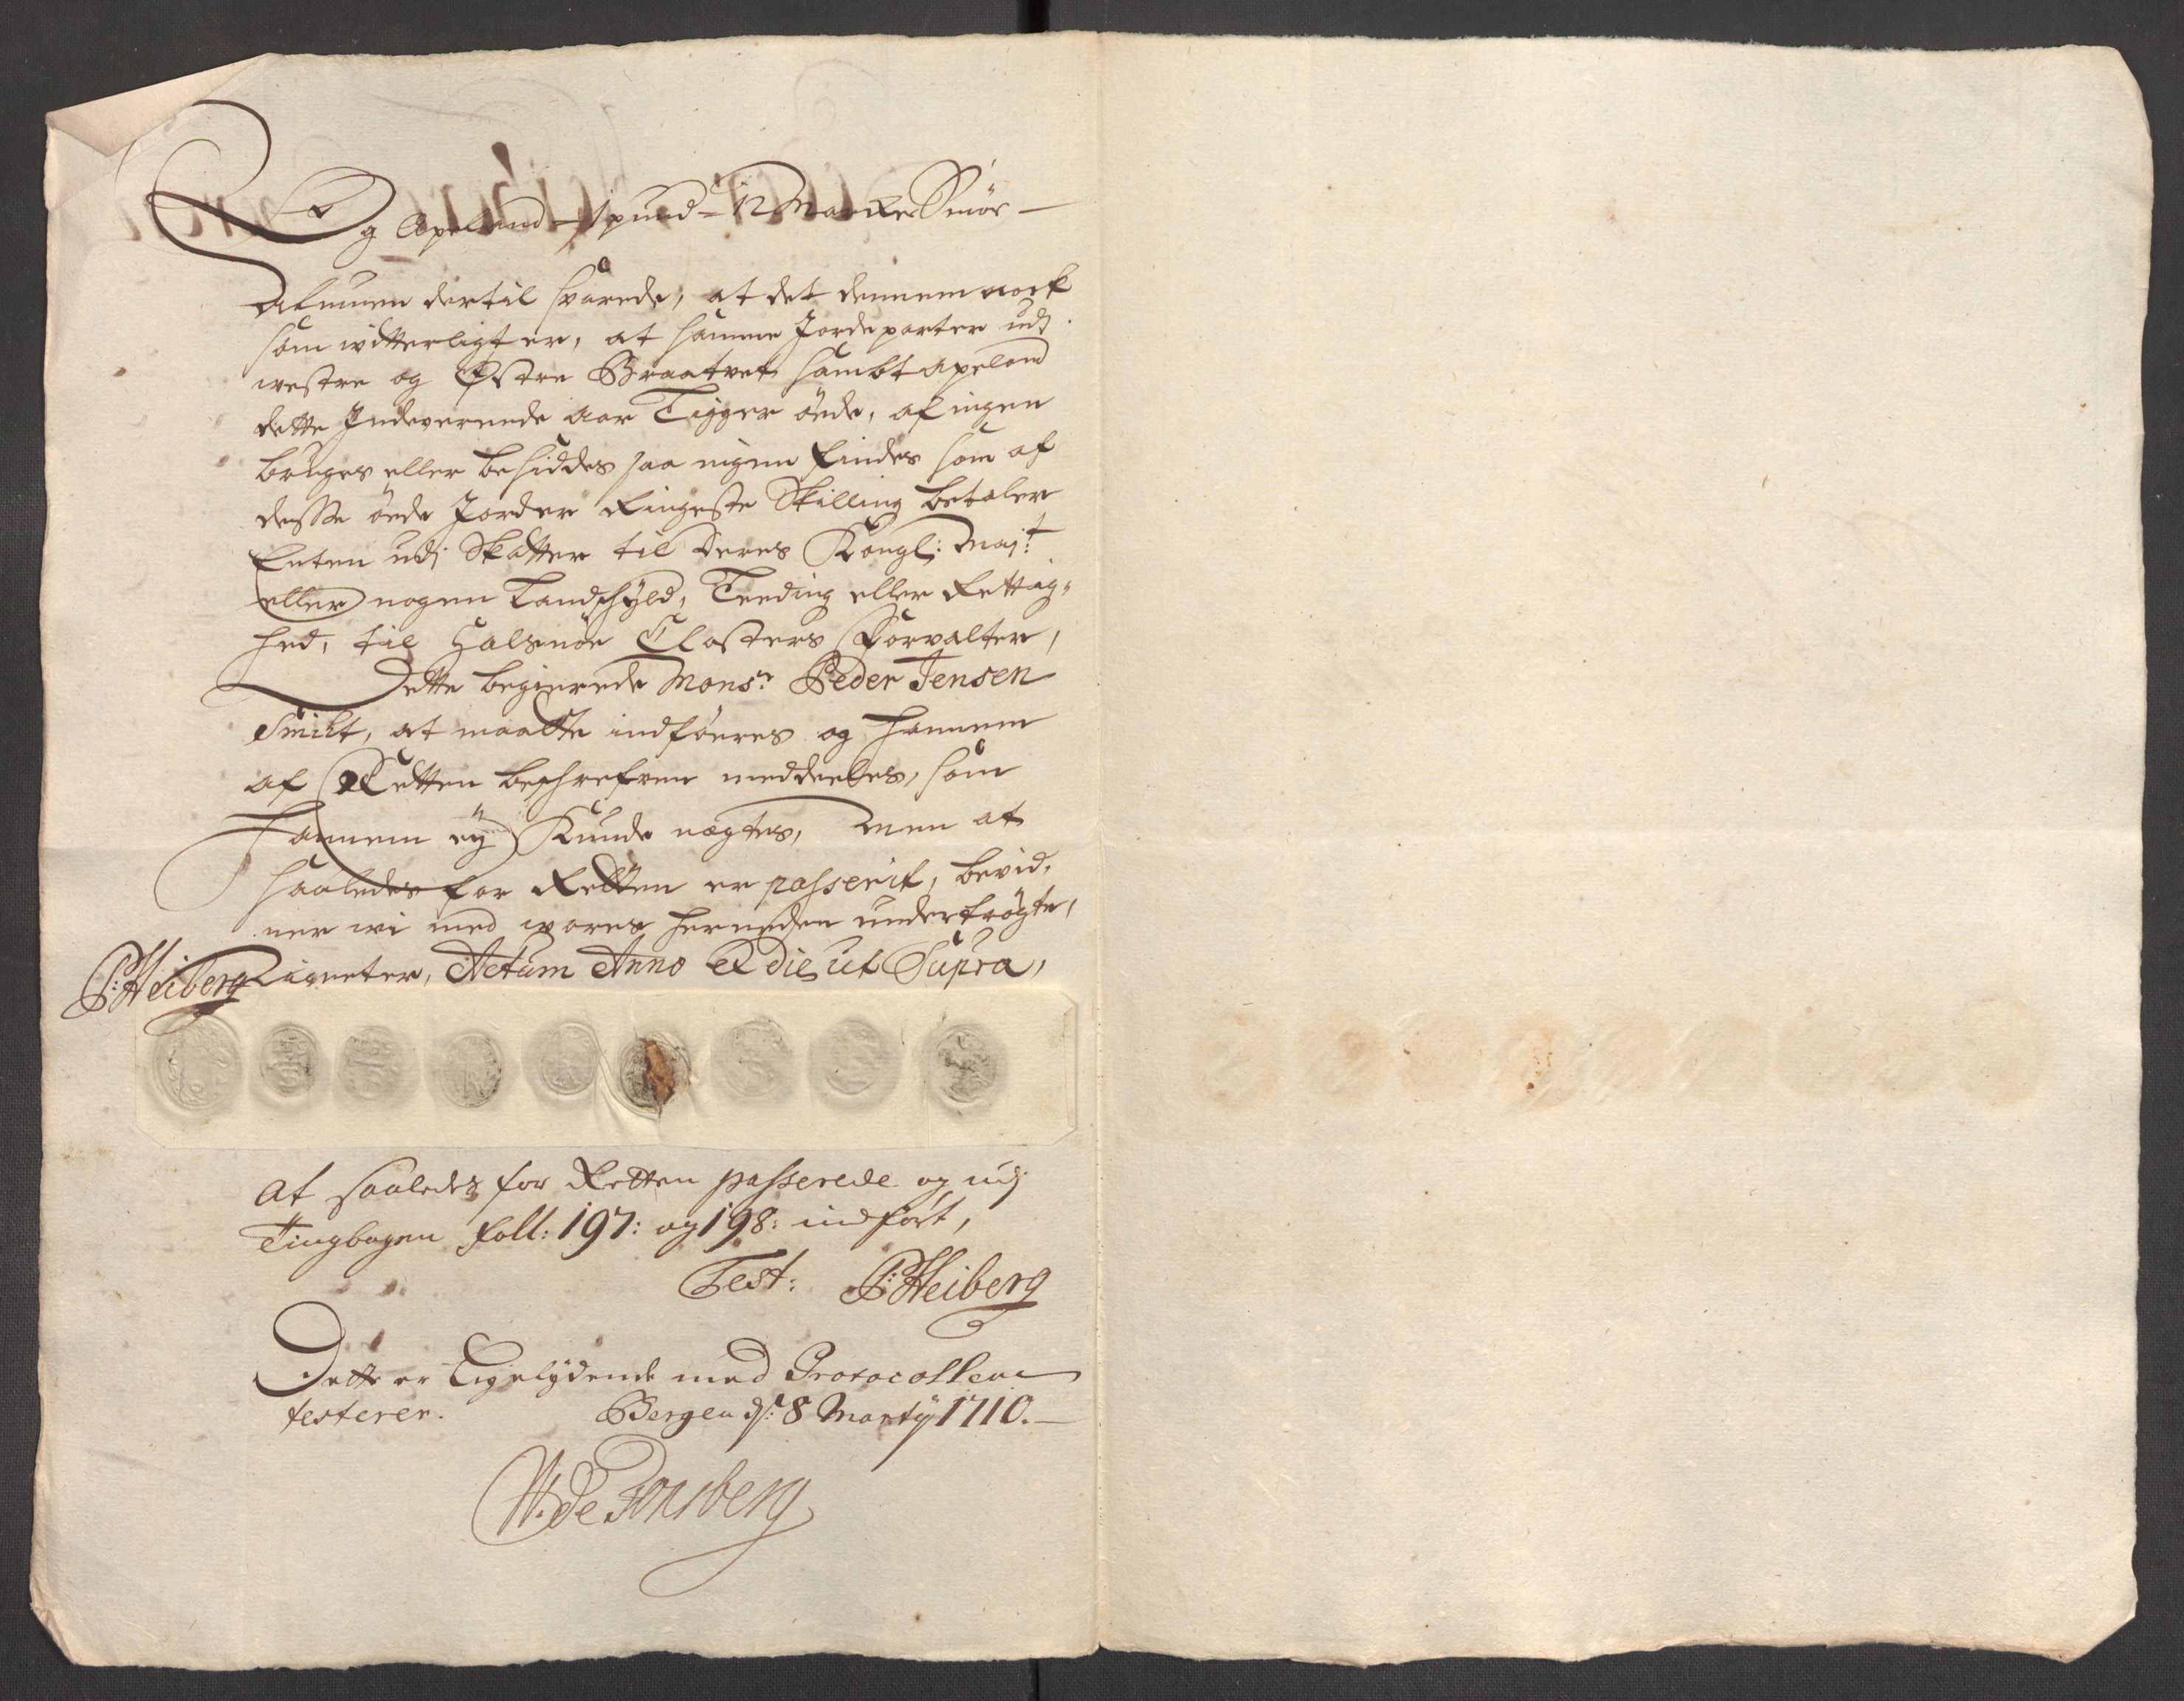 Og Apeland = 1 pund = 12 Marker Smör —
Almuen dertil svarede, at det dennem nock
som witterligt er, at samme Jordeparter udj
westre og Östre Braatvet sambt Apeland
dette Indeverende Aar Ligger öede, af ingen
bruges eller besiddes saa ingen findes som af
desse öede Jorder Ringeste Skilling betaler
Enten udj Skatter til Deres Kongl: Maj:t
eller nogen Landschyld, Leeding eller Rettig-
hed, til Halsnöe Closters Forvalter,
Dette begierede Mons:r Peder Jensen
Smidt, at maatte indföeres og hannem
af Retten beschrefven meddeeles, som
hannem ej Kunde nægtes, Men at
saaledes for Retten er passerit, bevid-
ner wi med wores herneden undertrögte,
P: Heiberg Zigneter, Actum Anno & Die ut Supra,
At saaledes for Retten passerede og udj
Tingbogen foll: 197: og 198: indfört,
Test: P: Heiberg
Dette er Ligelydende med Protocollen
testerer. Bergen d: 8 Martij 1710. —
W. de Tonsberg